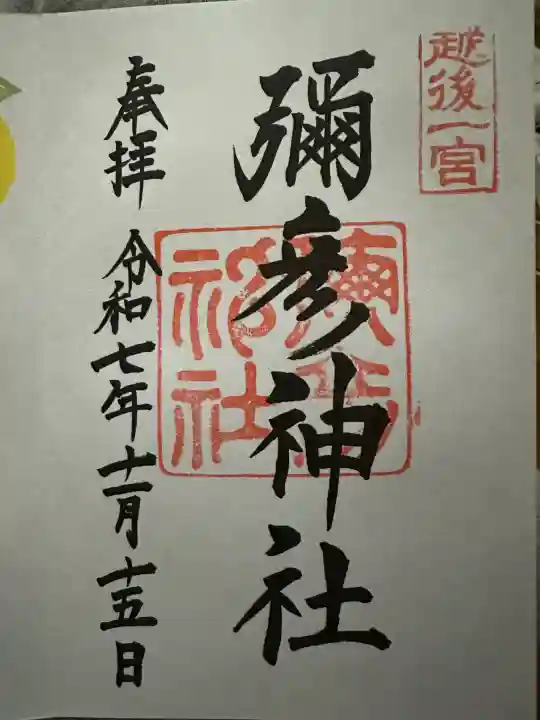 越後一宮
彌彦神社
奉拝 令和七年十一月十五日